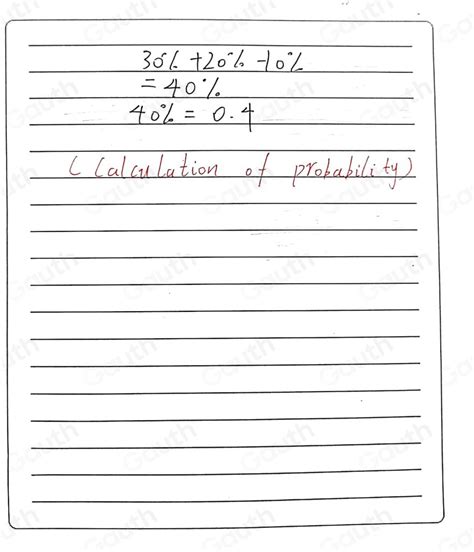 30% +20% -10%
= 40%
40% = 0.4
(Calculation of probability)